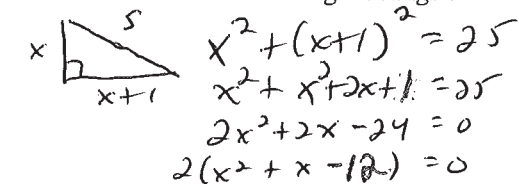 5
x
x+1
x² + (x+1)² = 25
x² + x² + 2x + 1 = 25
2x² + 2x - 24 = 0
2(x² + x - 12) = 0